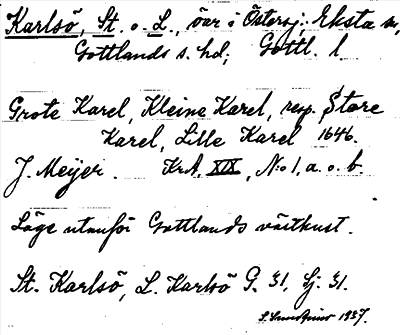 Karlsö, St. o. L., öar i Östersj. Eksta sn,
Gottlands s. hd; Gottl. l.
Grote Karel, Kleine Karel, resp. Store
Karel, Lille Karel 1646.
J. Meijer. KrA, XIX, N:o 1, a. o. b.
Läge utanför Gottlands västkust.
St. Karlsö, L. Karlsö G. 31, Sj. 31.
1937.